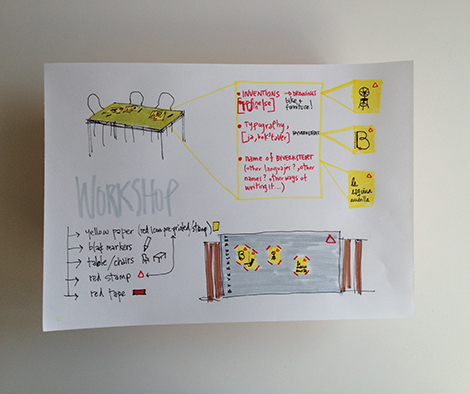 INVENTIONS → DRAWINGS
bike +
furniture!
Typography,
BYVERKSTEDET
B
Name of BYVERKSTEDET
(other languages?, other
names?, other ways of
writing it...)
la
esquina
sencilla
WORKSHOP
→ yellow paper (red icon pre-printed/stamp)
→ black markers
→ table/chairs
→ red stamp
→ red tape
BYVERKSTEDET
B